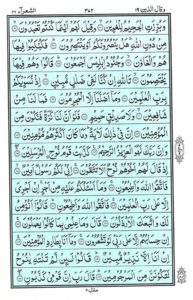 وقال الذين ١٩ ٣٥٢ الشعرآء ٢٦
وَبُرِّزَتِ الْجَحِيمُ لِلْغٰوِينَ وَقِيلَ لَهُمْ أَيْنَمَا كُنْتُمْ تَعْبُدُونَ
مِنْ دُونِ اللّٰهِ هَلْ يَنْصُرُونَكُمْ أَوْ يَنْتَصِرُونَ فَكُبْكِبُوا فِيهَا
هُمْ وَالْغَاوٗنَ وَجُنُودُ إِبْلِيسَ أَجْمَعُونَ قَالُوا وَهُمْ فِيهَا
يَخْتَصِمُونَ تَاللّٰهِ إِنْ كُنَّا لَفِي ضَلٰلٍ مُبِينٍ إِذْ نُسَوِّيكُمْ
بِرَبِّ الْعٰلَمِينَ وَمَا أَضَلَّنَا إِلَّا الْمُجْرِمُونَ فَمَا لَنَا مِنْ
شَافِعِينَ وَلَا صَدِيقٍ حَمِيمٍ فَلَوْ أَنَّ لَنَا كَرَّةً فَنَكُونَ مِنَ
الْمُؤْمِنِينَ إِنَّ فِي ذٰلِكَ لَاٰيَةً وَمَا كَانَ أَكْثَرُهُمْ مُؤْمِنِينَ وَإِنَّ
رَبَّكَ لَهُوَ الْعَزِيزُ الرَّحِيمُ كَذَّبَتْ قَوْمُ نُوحٍ الْمُرْسَلِينَ
إِذْ قَالَ لَهُمْ أَخُوهُمْ نُوحٌ أَلَا تَتَّقُونَ إِنِّي لَكُمْ رَسُولٌ أَمِينٌ
فَاتَّقُوا اللّٰهَ وَأَطِيعُونِ وَمَا أَسْـَٔلُكُمْ عَلَيْهِ مِنْ أَجْرٍ إِنْ أَجْرِيَ
إِلَّا عَلٰى رَبِّ الْعٰلَمِينَ فَاتَّقُوا اللّٰهَ وَأَطِيعُونِ قَالُوا أَنُؤْمِنُ
لَكَ وَاتَّبَعَكَ الْأَرْذَلُونَ قَالَ وَمَا عِلْمِي بِمَا كَانُوا يَعْمَلُونَ
إِنْ حِسَابُهُمْ إِلَّا عَلٰى رَبِّي لَوْ تَشْعُرُونَ وَمَا أَنَا بِطَارِدِ الْمُؤْمِنِينَ
إِنْ أَنَا إِلَّا نَذِيرٌ مُبِينٌ قَالُوا لَئِنْ لَمْ تَنْتَهِ يٰنُوحُ
لَتَكُونَنَّ مِنَ الْمَرْجُومِينَ قَالَ رَبِّ إِنَّ قَوْمِي كَذَّبُونِ
منزل ٥